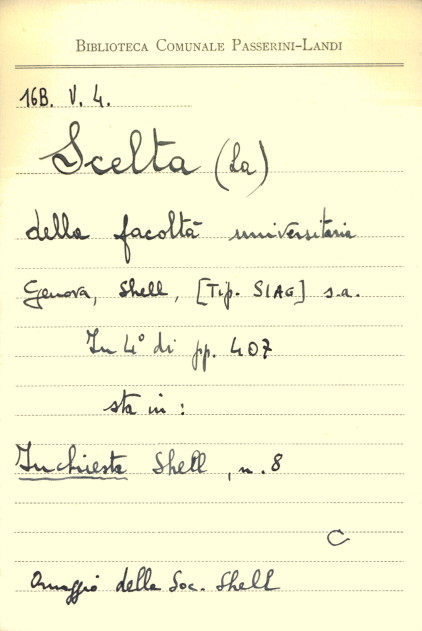 BIBLIOTECA COMUNALE PASSERINI-LANDI
16B. V. 4.
Scelta (La)
della facoltà universitaria
Genova, Shell, [Tip. SIAG] s.a.
In 4° di pp. 407
sta in :
Inchiesta Shell, n. 8
C
Omaggio della Soc. Shell